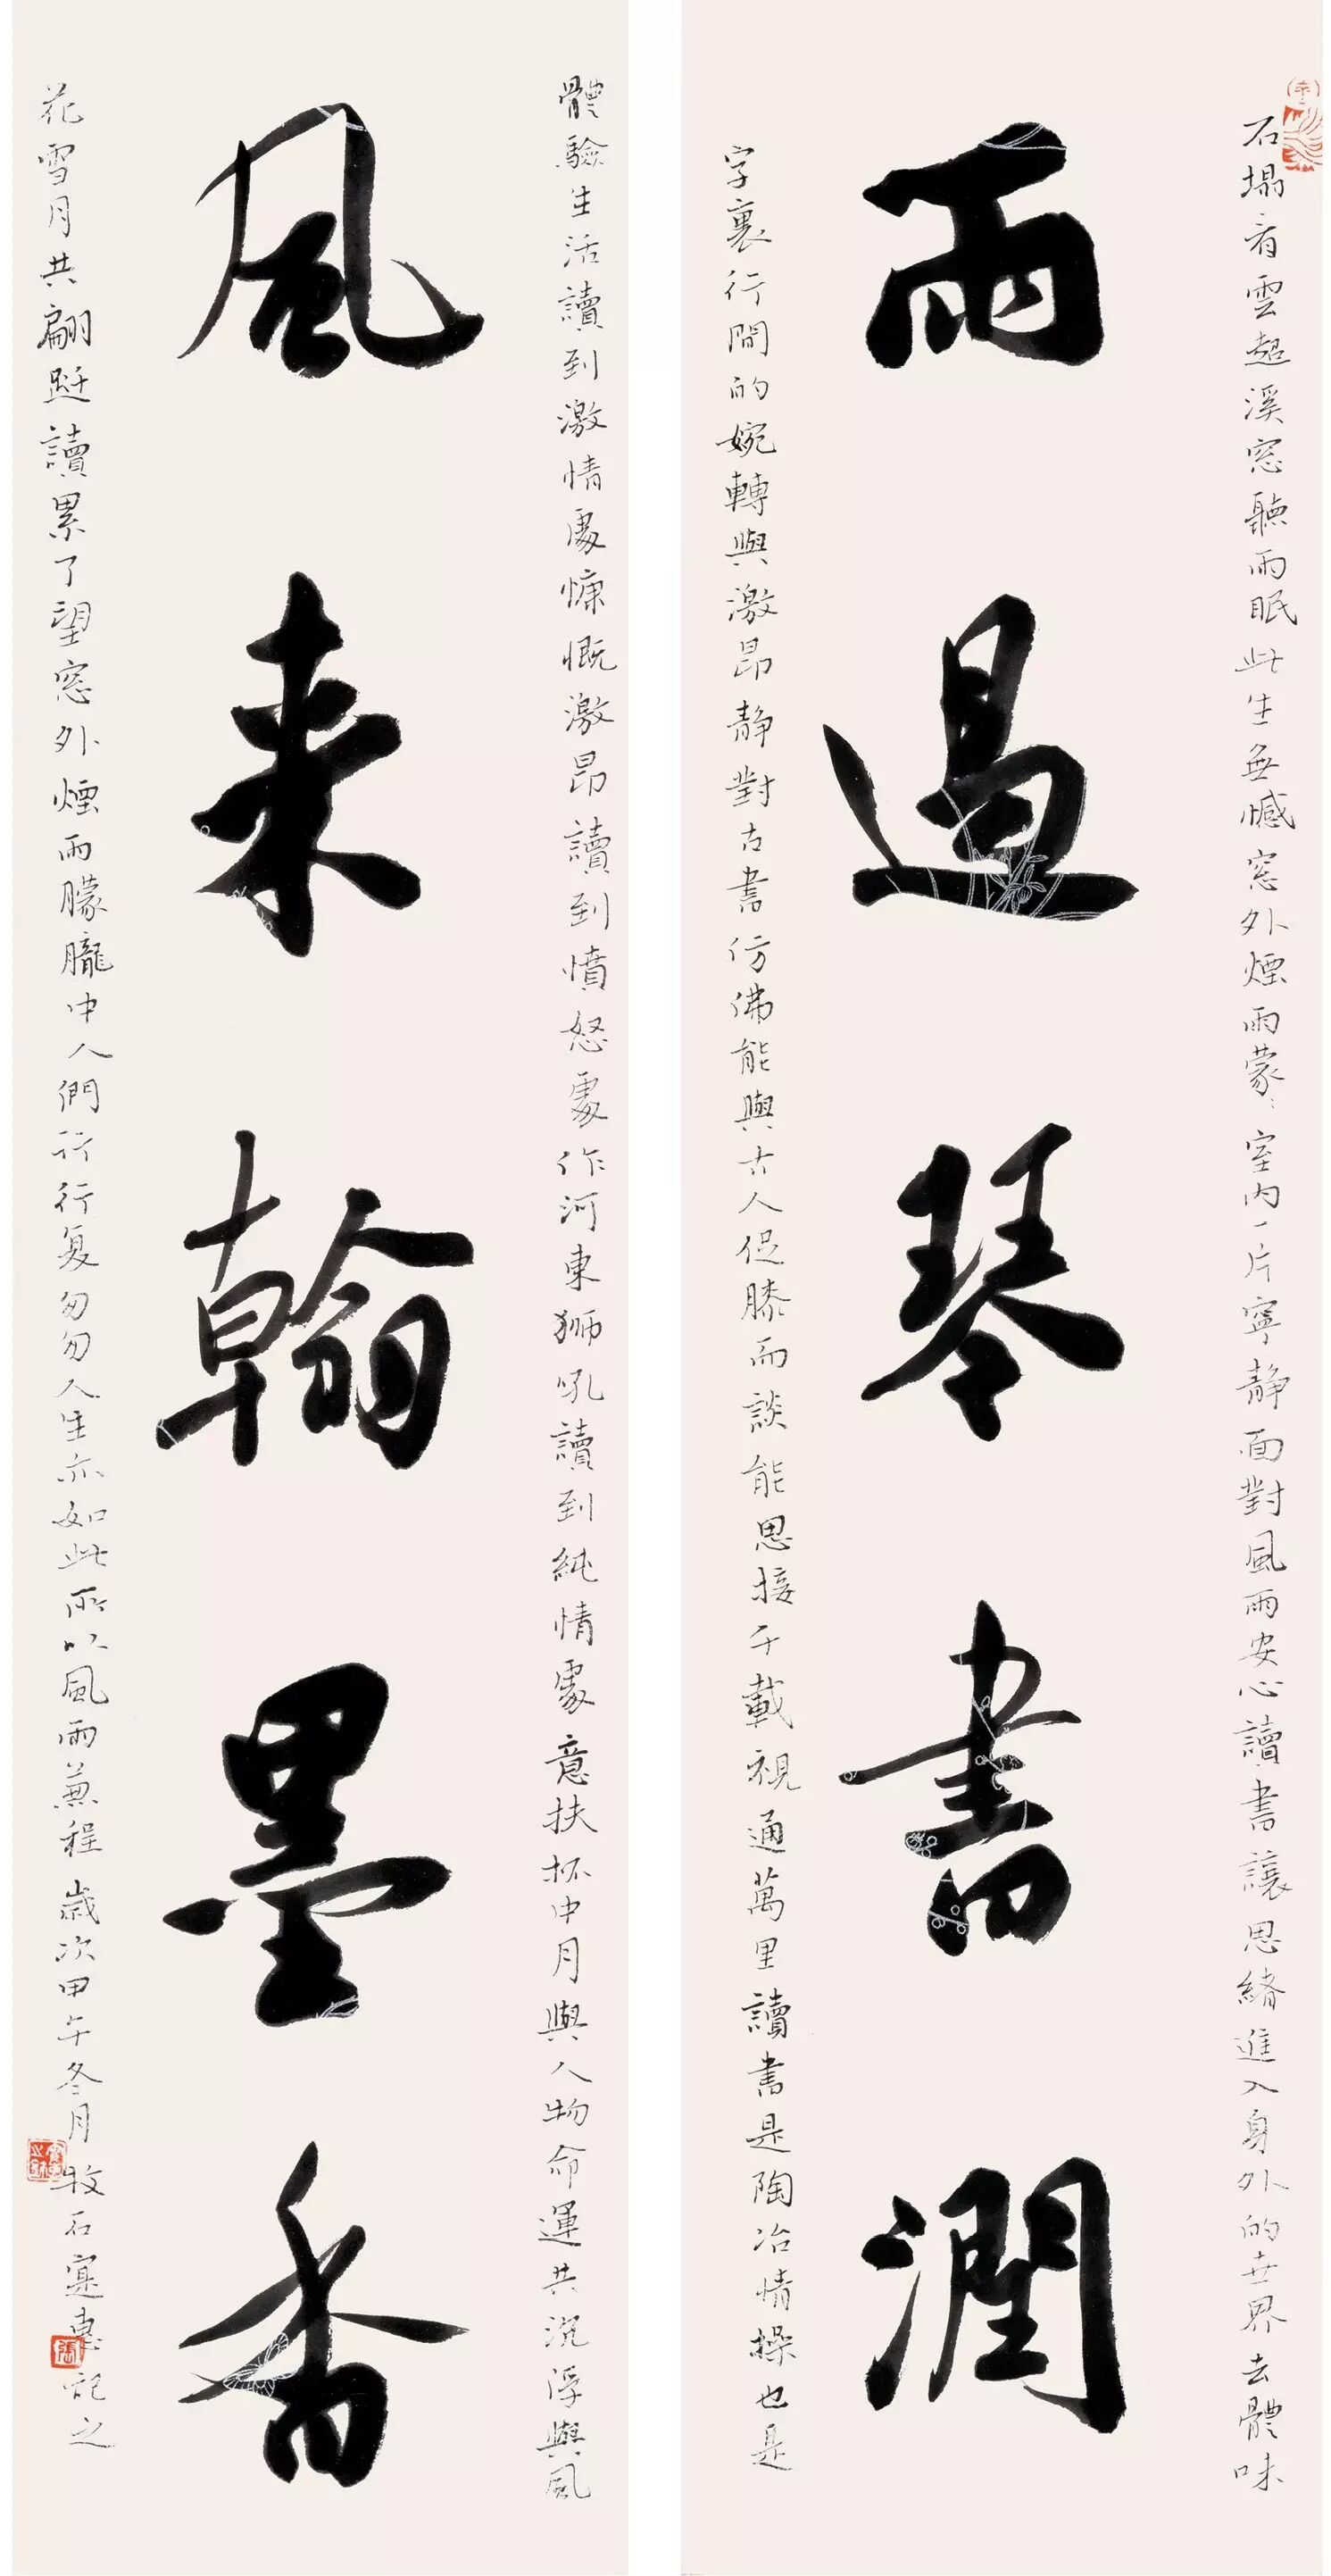 石塌看雲起溪窓聽雨眠此生無憾窓外煙雨蒙〻室内一片寧静面對風雨安心讀書讓思緒進入身外的世界去體味
雨過琴書潤
字裏行間的婉轉與激昂静對古書仿佛能與古人促膝而談能思接千載視通萬里讀書是陶冶情操也是
體驗生活讀到激情處慷慨激昂讀到憤怒處作河東獅吼讀到純情處意扶杯中月與人物命運共沉浮與風
風来翰墨香
花雪月共翩跹讀累了望窓外煙雨朦朧中人們行行复匆匆人生亦如此所以風雨兼程歲次甲午冬月牧石寔惠記之